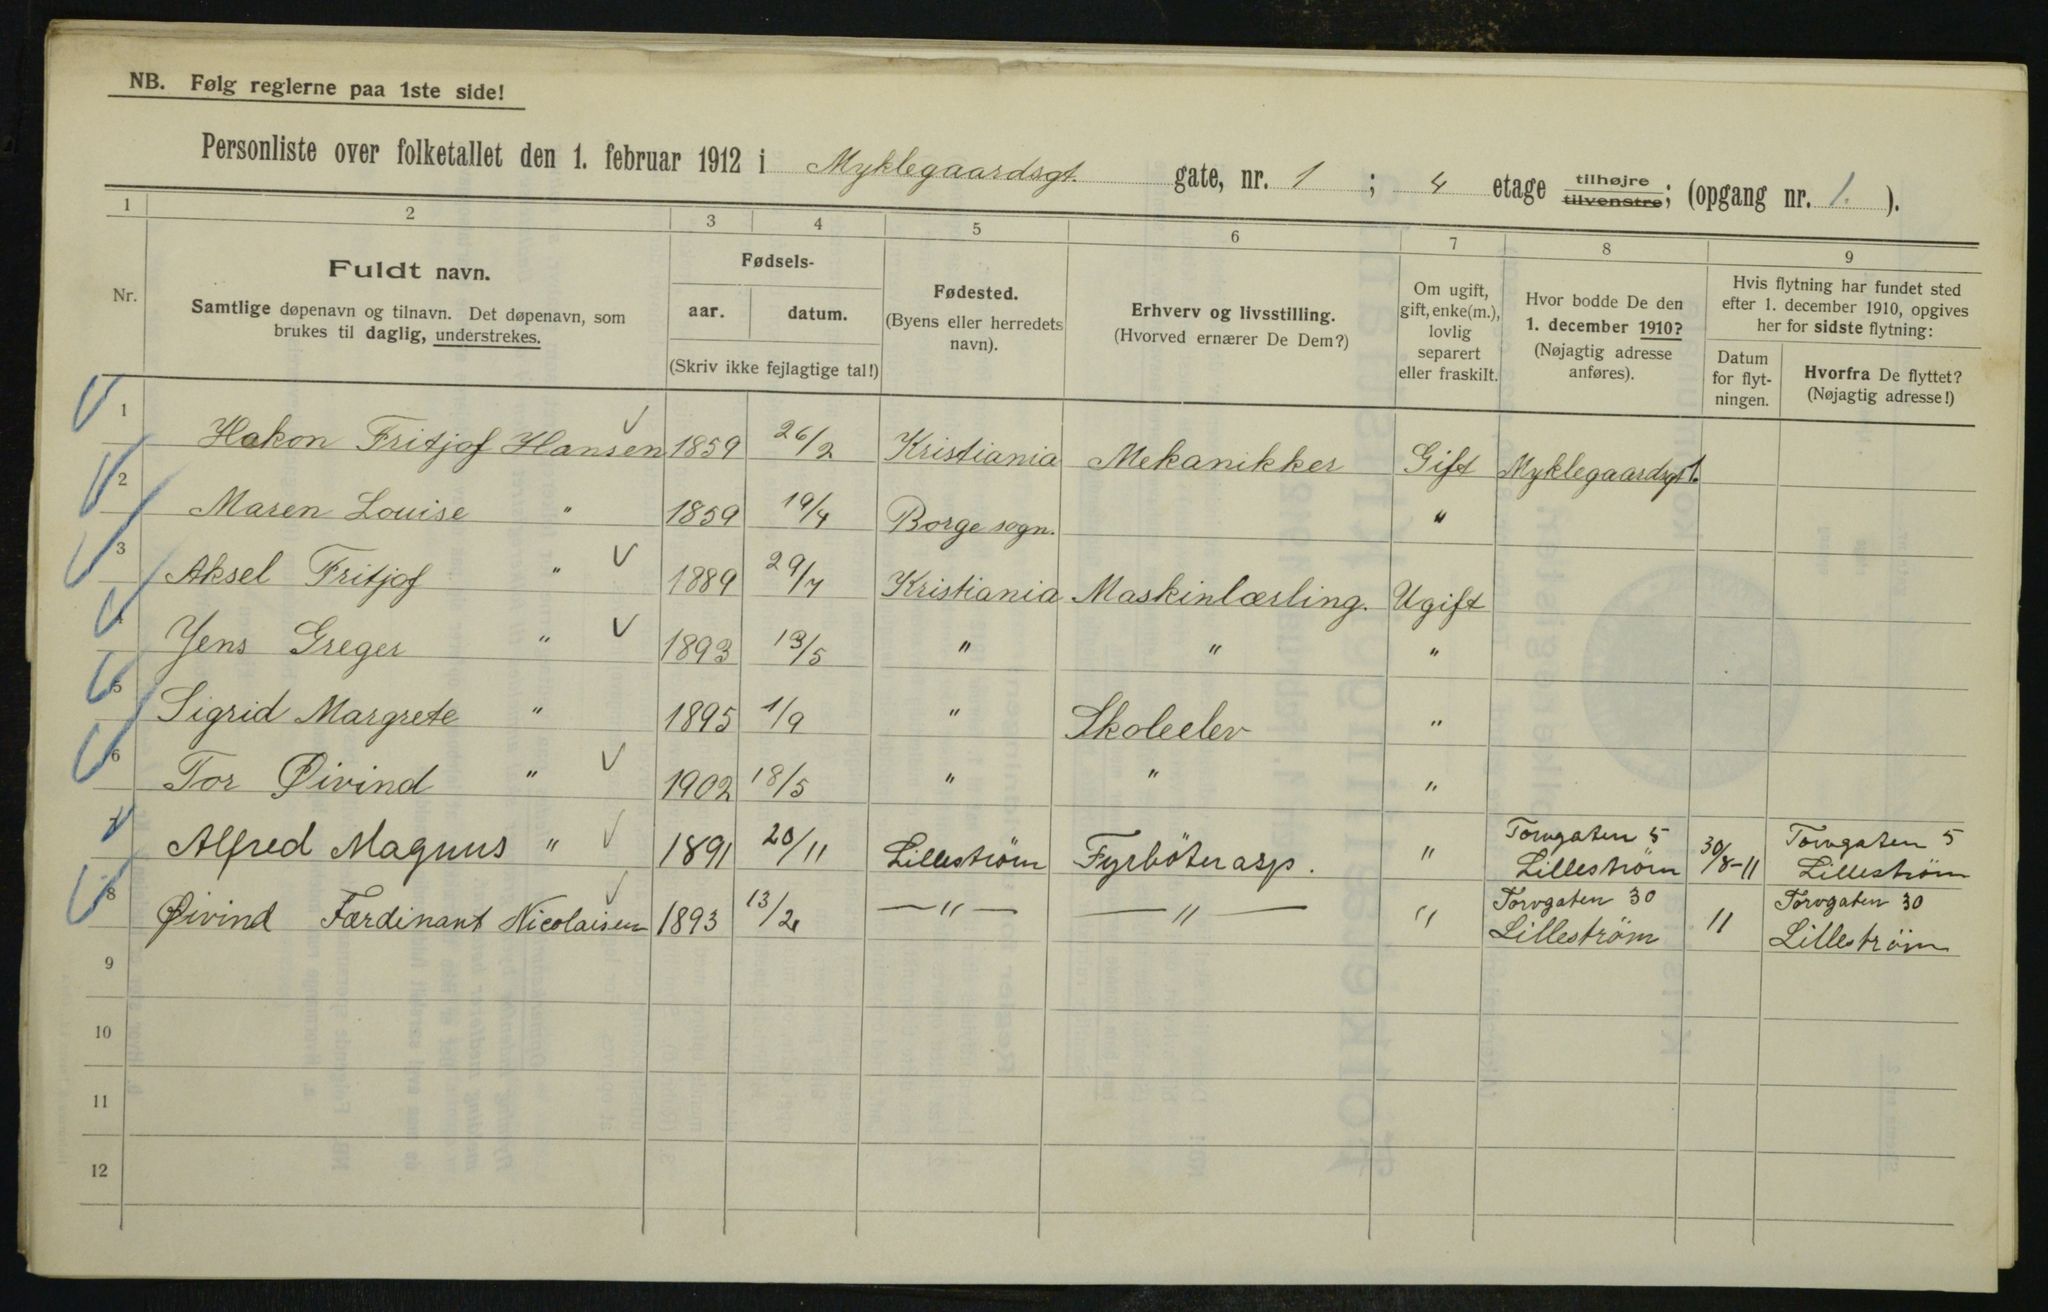 NB. Følg reglerne paa 1ste side!
Personliste over folketallet den 1. februar 1912 i Myklegaardsgt. gate, nr. 1 ; 4 etage tilhøjre tilvenstre; (opgang nr. 1. ).
1 2 3 4 5 6 7 8 9
Nr.
Fuldt navn.
Samtlige døpenavn og tilnavn. Det døpenavn, som
brukes til daglig, understrekes.
Fødsels-
aar. datum.
(Skriv ikke fejlagtige tal!)
Fødested.
(Byens eller herredets
navn).
Erhverv og livsstilling.
(Hvorved ernærer De Dem?)
Om ugift,
gift, enke(m.),
lovlig
separert
eller fraskilt.
Hvor bodde De den
1. december 1910?
(Nøjagtig adresse
anføres).
Hvis flytning har fundet sted
efter 1. december 1910, opgives
her for sidste flytning:
Datum
for flyt-
ningen.
Hvorfra De flyttet?
(Nøjagtig adresse!)
1 Hakon Fritjof Hansen 1859 26/2 Kristiania Mekanikker Gift Myklegaardsgt 1.
2 Maren Louise " 1859 19/4 Borge sogn. "
3 Aksel Fritjof " 1889 29/7 Kristiania Maskinlærling. Ugift
4 Jens Greger " 1893 13/5 " " "
5 Sigrid Margrete " 1895 1/9 " Skoleelev "
6 Tor Øivind " 1902 18/5 " " "
7 Alfred Magnus " 1891 20/11 Lilleström Fyrböterasp. " Torvgaten 5 Lilleström 30/8-11 Torvgaten 5 Lilleström
8 Øivind Færdinant Nicolaisen 1893 13/2 — " — — " — " Torvgaten 30 Lilleström " Torvgaten 30 Lilleström
9
10
11
12